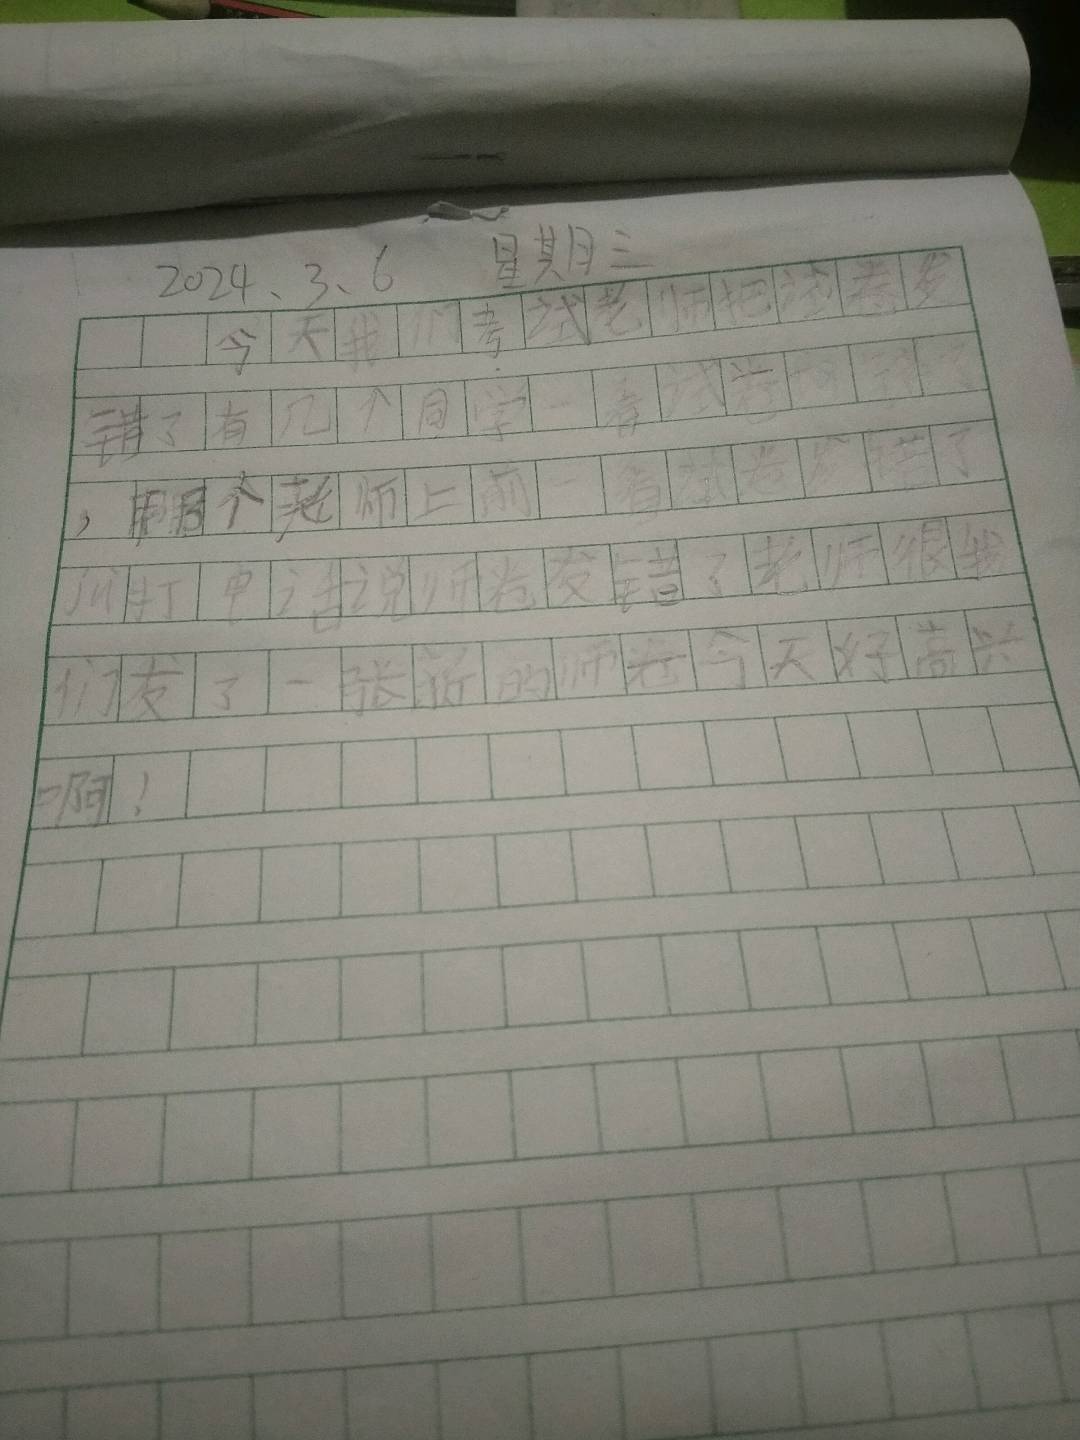 2024、3、6 星期三
今天我们考试老师把试卷发
错了有几个同学一看试卷
，个老师上前一看试卷发错了
打电话说师卷发错了老师很我
们发了一张新的师卷今天好高兴
啊！